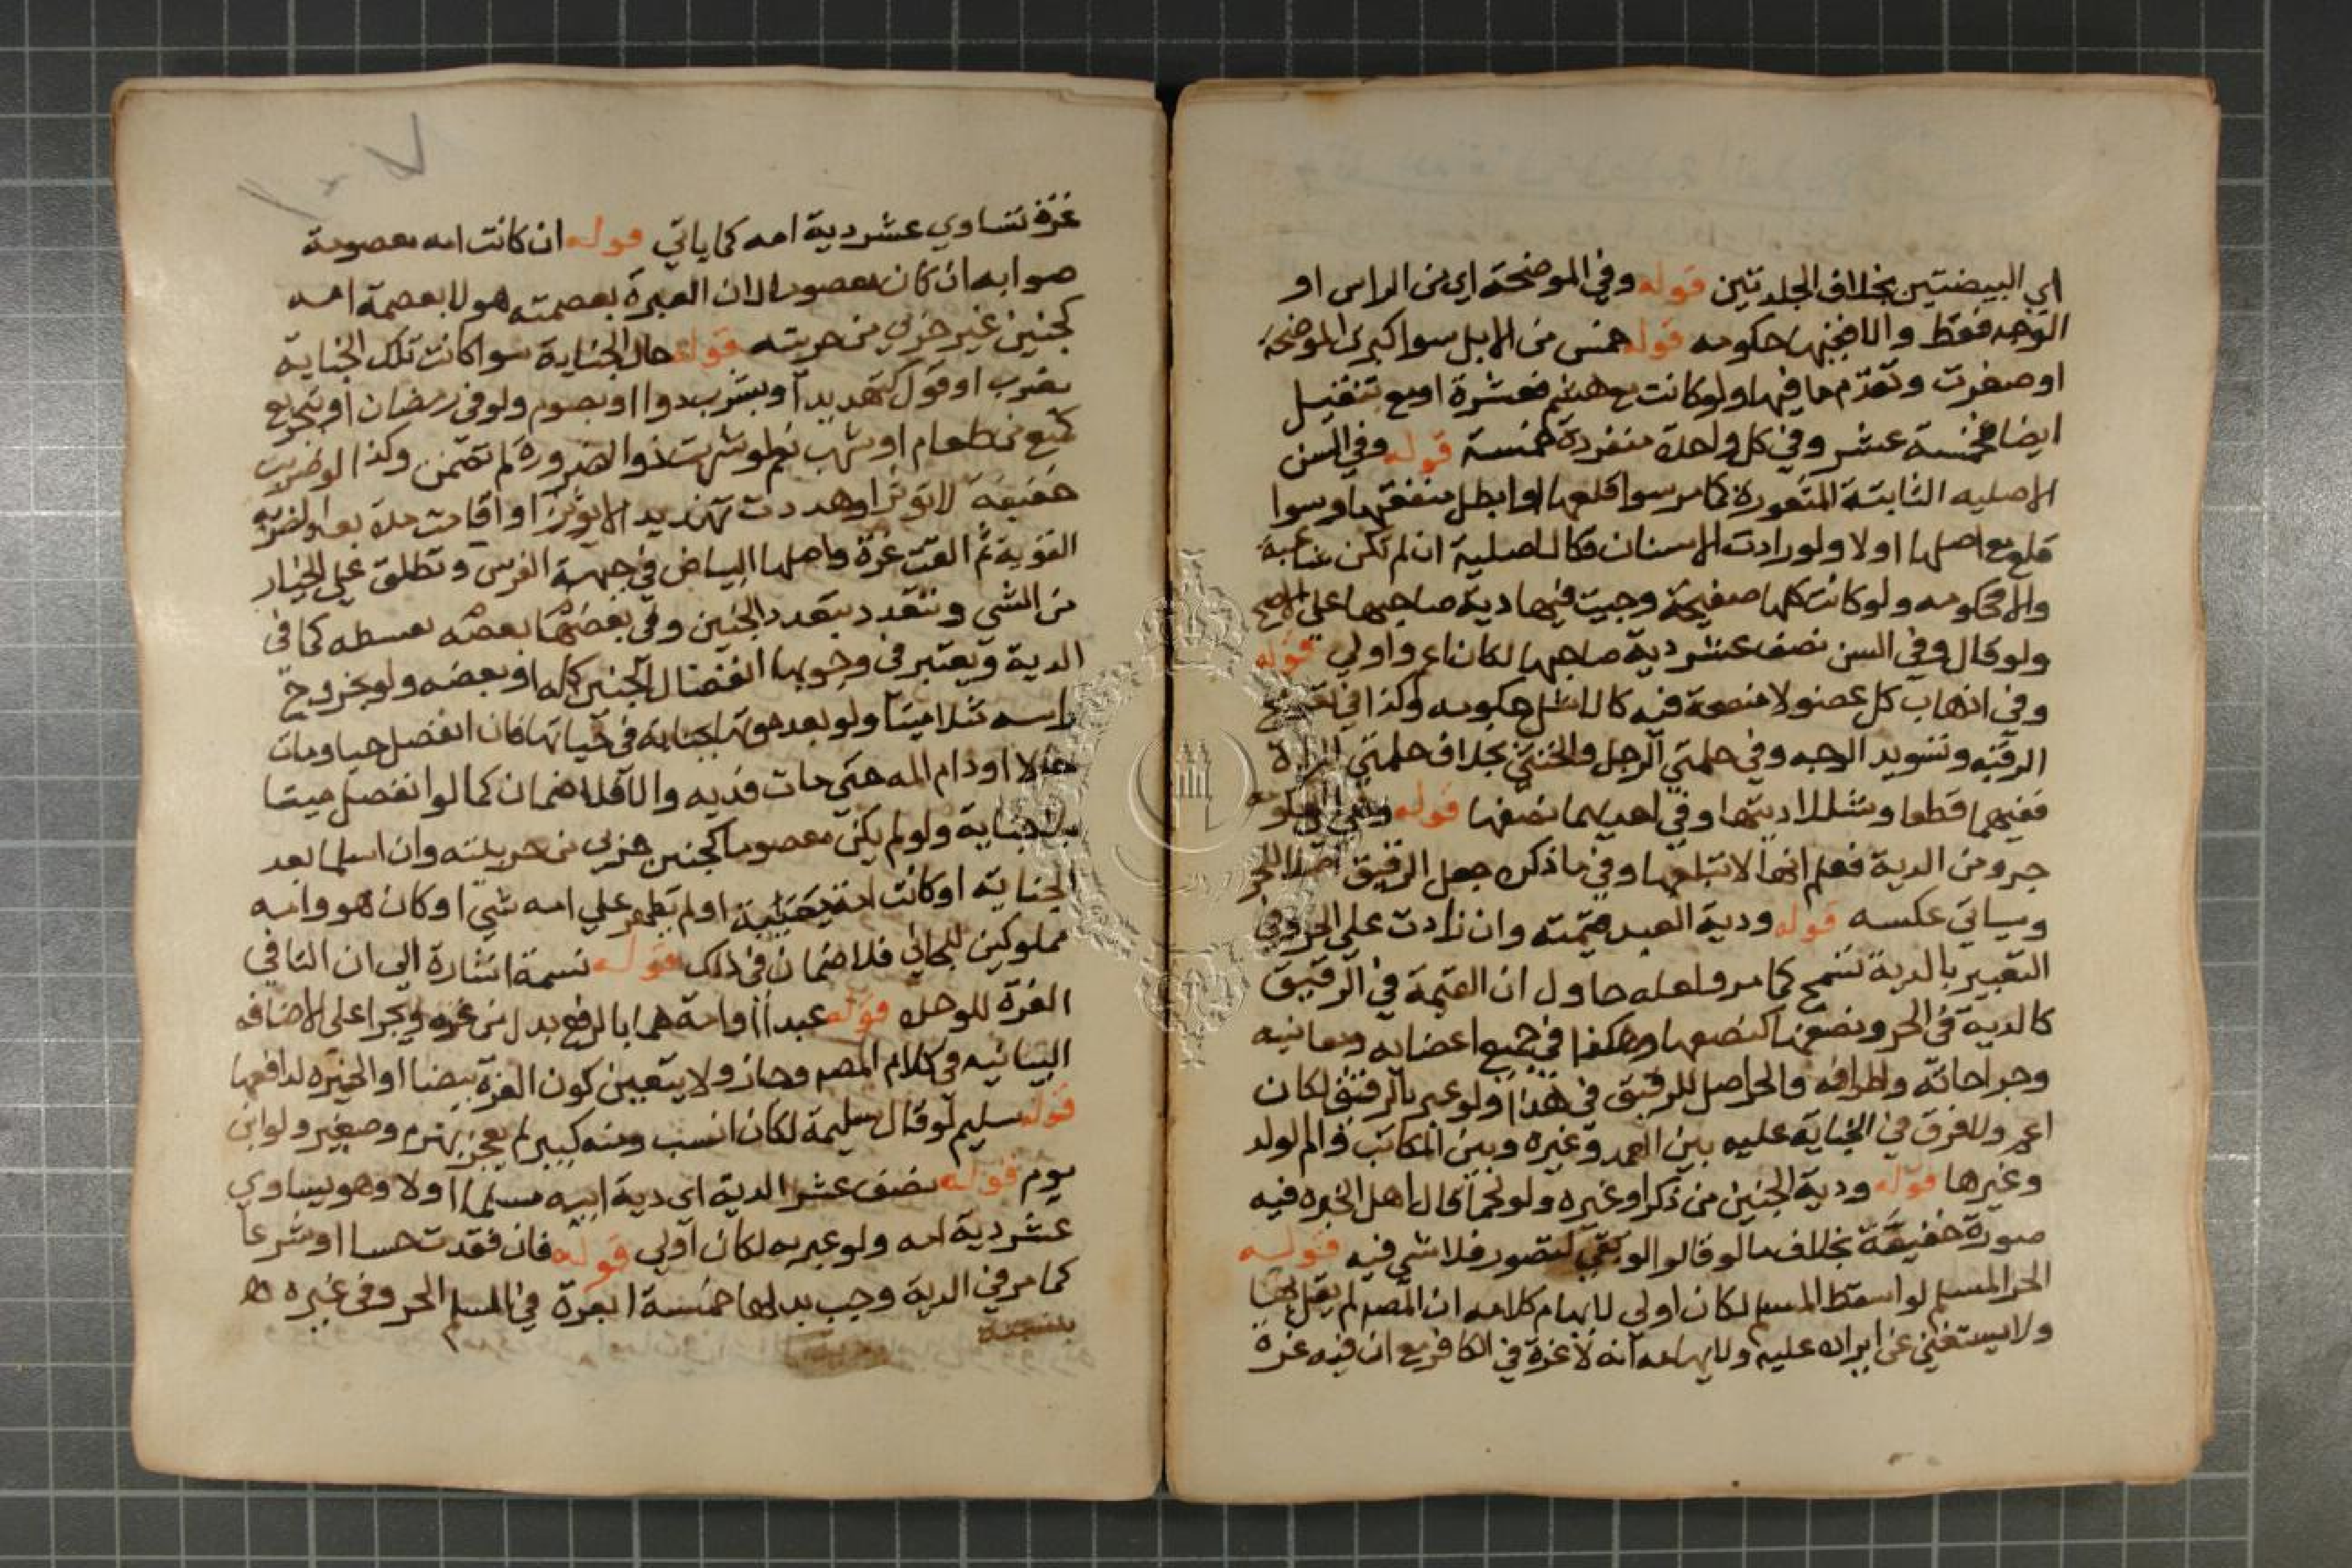 اي البيضتين بخلاف الجلدتين قوله وفي الموضحة اي من الراس او
الوجه فقط والا ففيها حكومه قوله خمس من الابل سوا كبرت الموضحة
او صغرت وتقدم ما فيها ولو كانت مع هشم فعشرة او مع تنقيل
ايضا فخمسة عشر وفي كل واحدة منفردة خمسة قوله وفي السن
الاصليه الثابتة المثغورة كما مر سوا قلعها او ابطل منفعتها وسوا
قلع مع اصلها اولا ولو زادت الاسنان فكالاصلية ان لم تكن شاغية
والا فحكومه ولو كانت كلها صفيحة وجبت فيها دية صاحبها على الاصح
ولو قال وفي السن نصف عشر دية صاحبها لكان اعم واولي قوله
وفي اذهاب كل عضو لا منفعة فيه كالاشل حكومه وكذا في تعويج
الرقبه وتسويد الوجه وفي حلمتي الرجل والخنثى بخلاف حلمتي المراة
ففيهما قطعا وشللا ديتها وفي احديهما نصفها قوله وهي الحكومه
جزو من الدية فعلم انها لا تبلغها وفي ما ذكره جعل الرقيق اصلا للحر
وسياتي عكسه قوله ودية العبد قيمته وان زادت على الحر وفي
التعبير بالدية تسمح كما مر ولعله حاول ان القيمة في الرقيق
كالدية في الحر ونصفها كنصفها وهكذا في جميع اعضايه ومعانيه
وجراحاته واطرافه فالحر اصل للرقيق في هذا ولو عبر بالرقيق لكان
اعم ولا فرق في الجناية عليه بين العمد وغيره وبين المكاتب وام الولد
وغيرها قوله ودية الجنين من ذكر او غيره ولو لحما قال اهل الخبره فيه
صورة خفية بخلاف ما لو قالوا لو بقي لتصور فلا شي فيه قوله
الحر المسلم لو اسقط المسلم لكان اولي لايهام كلامه ان المصـ لم يقل بها
ولا يستغني عن ايراده عليه ولايهامه انه لا غرة في الكافر مع ان فيه غرة
غرة تساوي عشر دية امه كما ياتي قوله ان كانت امه معصومة
صوابه ان كان معصوما لان العبرة بعصمته هو لا بعصمة امه
كجنين غير حربي من حربيته قوله حال الجناية سوا كانت تلك الجناية
بضرب او قول كتهديد او بشرب دوا او بصوم ولو في رمضان او تجويع
كمنع من طعام او شرب نعم لو شربت دوا لضرورة لم تضمن وكذا لو ضربت
خفيفة لا توثر او هددت تهديد لا يوثر او اقامت مدة بعد الضربه
القوية ثم القت غرة واصلها البياض في جبهة الفرس وتطلق على الخيار
من الشي وتتعدد بتعدد الجنين وفي بعضها بعضه بقسطه كما في
الدية ويعتبر في وجوبها انفصال الجنين كله او بعضه ولو بخروج
راسه مثلا ميتا ولو بعد موتها بجناية في حياتها فان انفصل حيا ومات
حالا او دام المه حتى مات فديه والا فلا ضمان كما لو انفصل ميتا
بلا جناية ولو لم يكن معصوما كجنين حربي من حربيته وان اسلما بعد
الجناية او كانت امه ميتة او لم يظهر على امه شي او كان هو وامه
مملوكين للجاني فلا ضمان في ذلك قوله نسمة اشارة الي ان التا في
الغرة للوحدة قوله عبدا او امة هما بالرفع بدل من غره ويجرا على الاضافه
البيانيه في كلام المصـ وجاز ولا يتعين كون الغرة بيضا او الخيره لدافعها
قوله سليم لو قال سليمة لكان انسب ومنه كبير لم يعجز بهرم وصغير ولو ابن
يوم قوله نصف عشر الدية اي دية ابيه مسلما اولا وهو يساوي
عشر دية امه ولو عبر به لكان اولي قوله فان فقدت حسا او شرعا
كما مر في الدية وجب بدلها خمسة ابعرة في المسلم الحر وفي غيره
بنسبته